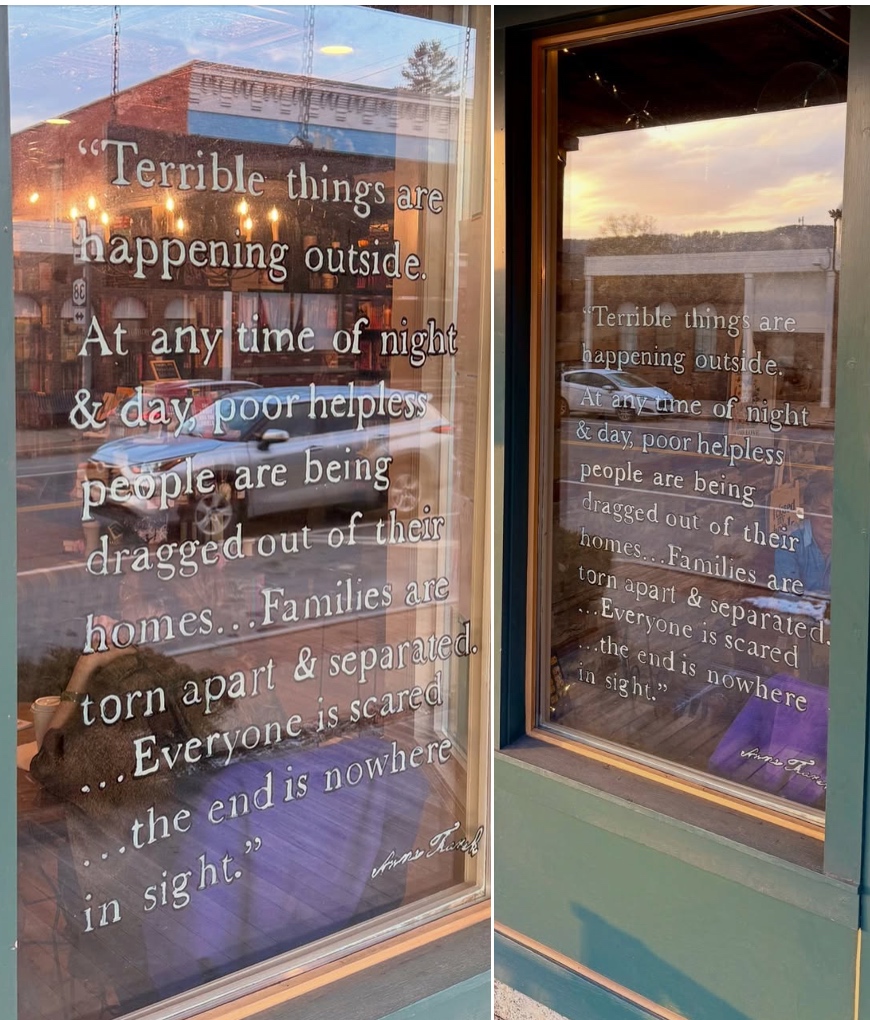 “Terrible things are
happening outside.
At any time of night
& day, poor helpless
people are being
dragged out of their
homes...Families are
torn apart & separated.
...Everyone is scared
...the end is nowhere
in sight.”
Anne Frank
“Terrible things are
happening outside.
At any time of night
& day, poor helpless
people are being
dragged out of their
homes...Families are
torn apart & separated.
...Everyone is scared
...the end is nowhere
in sight.”
Anne Frank